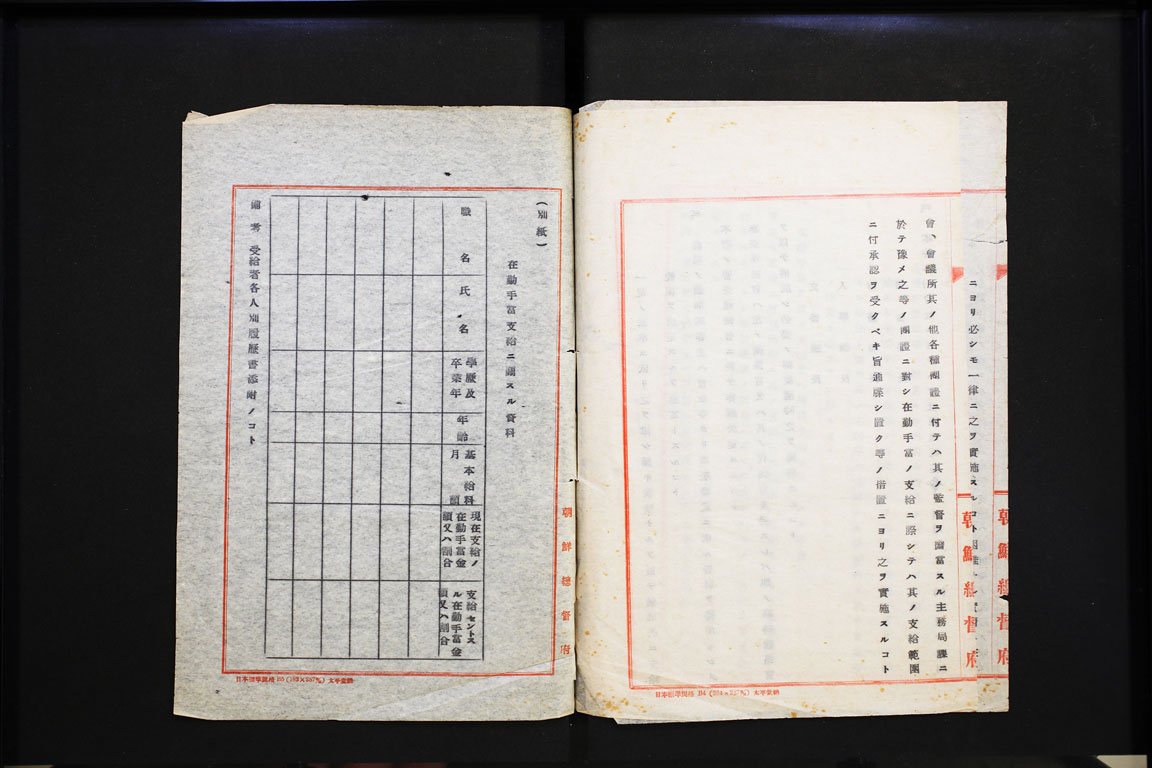 ニヨリ必シモ一律ニ之ヲ實施スルコト困難
朝鮮總督府
朝鮮總督府
會、會議所其ノ他各種團體ニ付テハ其ノ監督ヲ擔當スル主務局課ニ
於テ豫メ之等ノ團體ニ對シ在勤手當ノ支給ニ際シテハ其ノ支給範圍
ニ付承認ヲ受クベキ旨通牒シ置ク等ノ措置ニヨリ之ヲ實施スルコト
日本標準規格 B4
太平堂納
(別紙)
朝鮮總督府
在勤手當支給ニ關スル資料
職名
氏名
學歷及
卒業年
年齡
基本給料
月額
現在支給ノ
在勤手當金
額又ハ割合
支給セントス
ル在勤手當金
額又ハ割合
備考 受給者各人別履歷書添附ノコト
日本標準規格 B5
太平堂納